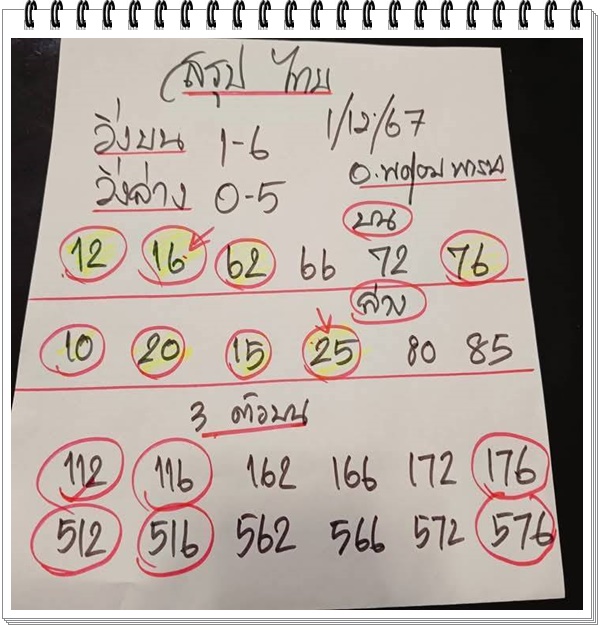 สรุป ไทย
วิ่งบน 1-6 1/12/67
วิ่งล่าง 0-5
บน
12 16 62 66 72 76
ล่าง
10 20 15 25 80 85
3 ตัวบน
112 116 162 166 172 176
512 516 562 566 572 576